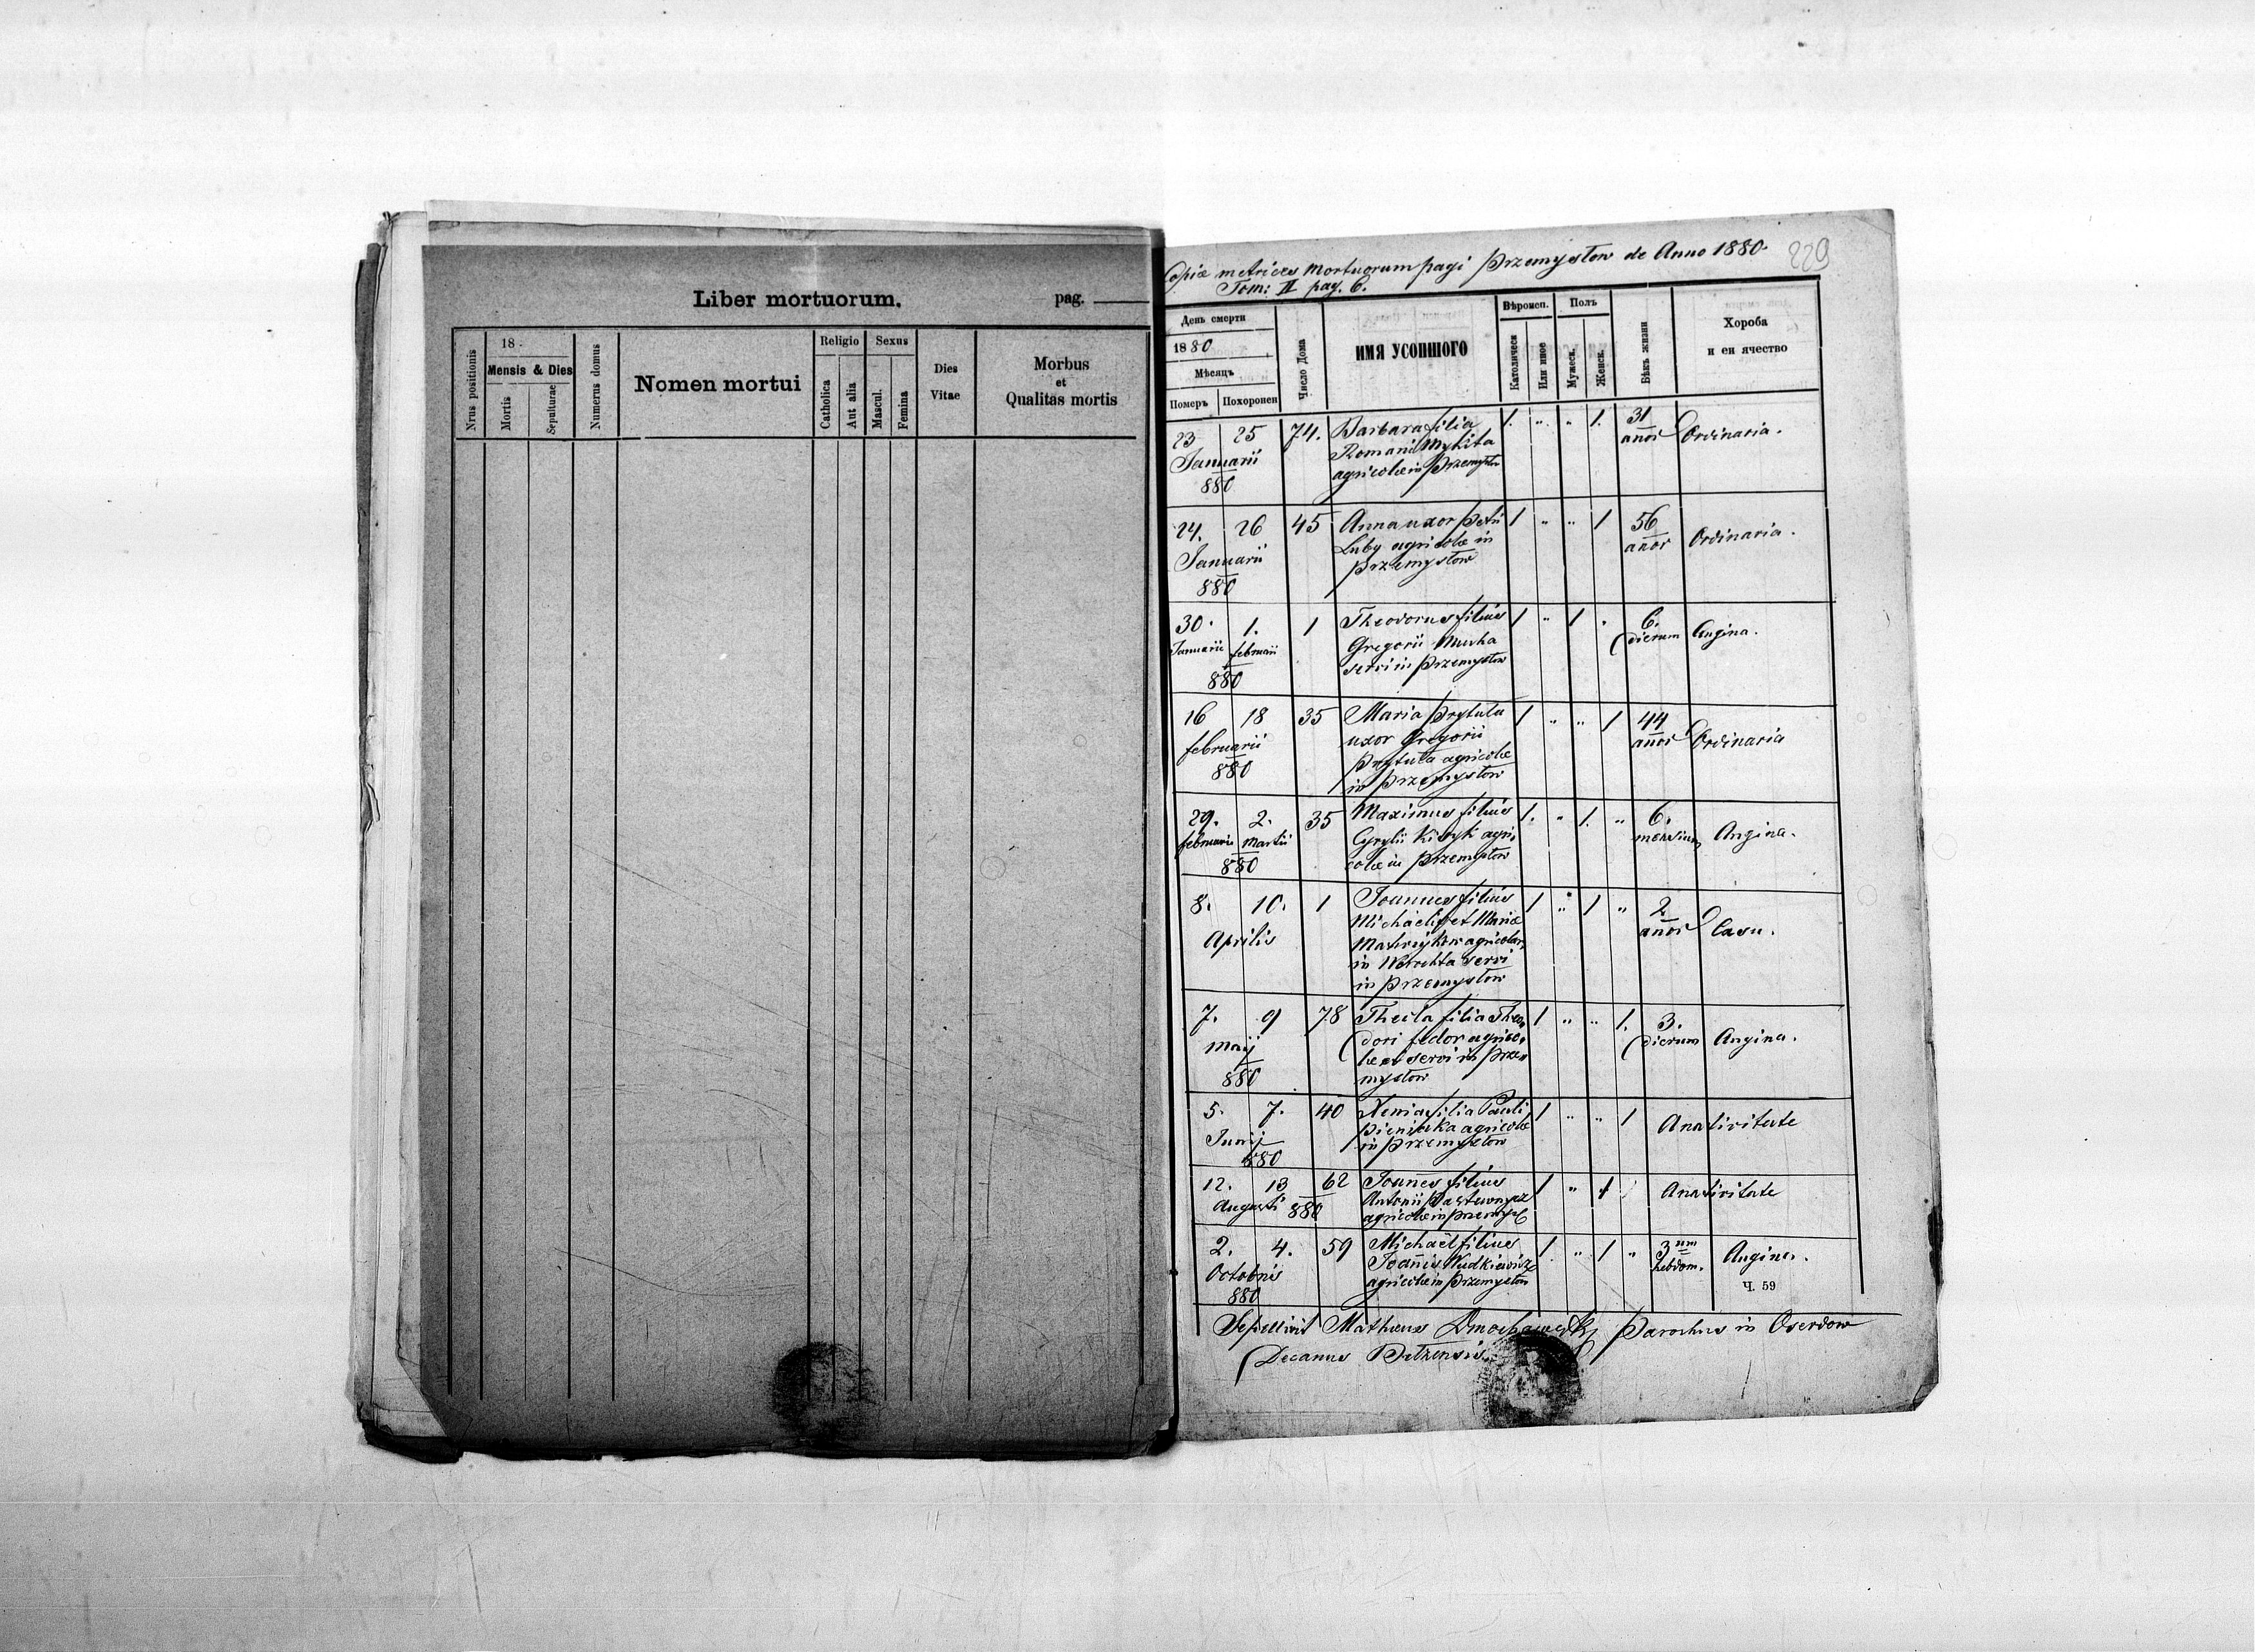 Liber mortuorum.
pag.
Nrus positionis
18
Mensis & Dies
Mortis
Sepulturae
Numerus domus
Nomen mortui
Religio
Catholica
Aut alia
Sexus
Mascul.
Femina
Dies
Vitae
Morbus
et
Qualitas mortis
Copia metrices mortuorum pagi Przemysłow de Anno 1880.
229
Tom: II pag. 6.
День смерти
1880
Мѣсяцъ
Померъ
Похоронен
Число Дома
ИМЯ УСОПШОГО
Вѣроисп.
Католическ
Или иное
Полъ
Мужеск.
Женск.
Бѣкъ жизни
Хороба
и еи ячество
23 25 74. Barbara filia 1. " " 1. 31 Ordinaria.
Januarii Romani Mykita años
880 agricolae in Przemysłow
24. 26 45 Anna uxor Petri 1 " " 1 56 Ordinaria.
Januarii Luby agricolae in años
880 Przemysłow
30. 1. 1 Theodorus filius 1 " 1 " 6. Angina.
Januarii februarii Gregorii Mucha dierum
880 servi in Przemysłow
16 18 35 Maria Prytuła 1 " " 1 44 Ordinaria
februarii uxor Gregorii años
880 Prytuła agricolae
in Przemysłow
29. 2. 35 Maximus filius 1. " 1. " 6. Angina.
februarii Martii Cyrylii agri,
880 colae in Przemysłow mensium
8. 10. 1 Joannes filius 1 " 1 " 2 Casu.
Aprilis Michaelis et Mariae años
agricolar,
in servi
in Przemysłow
7. 9 78 Thecla filia Theo, 1 " " 1. 3. Angina.
Maij dori fedor agrico, dierum
880 lae et servi in Prze,
mysłow
5. 7. 40 Xenia filia Pauli 1 " " 1 A nativitate
Junij agricolae
880 in Przemysłow
12. 13 62 Joannes filius 1 " 1 A nativitate
Augusti 880 Antonii
agricolae in Przemysł
2. 4. 59 Michaël filius 1 " 1 " 3um Angina.
Octobris Joannis hebdom.
880 agricolae in Przemysłow
Ч. 59
Sepelivit Matheus Parochus in Oserdow
Decanus Bełzensis.